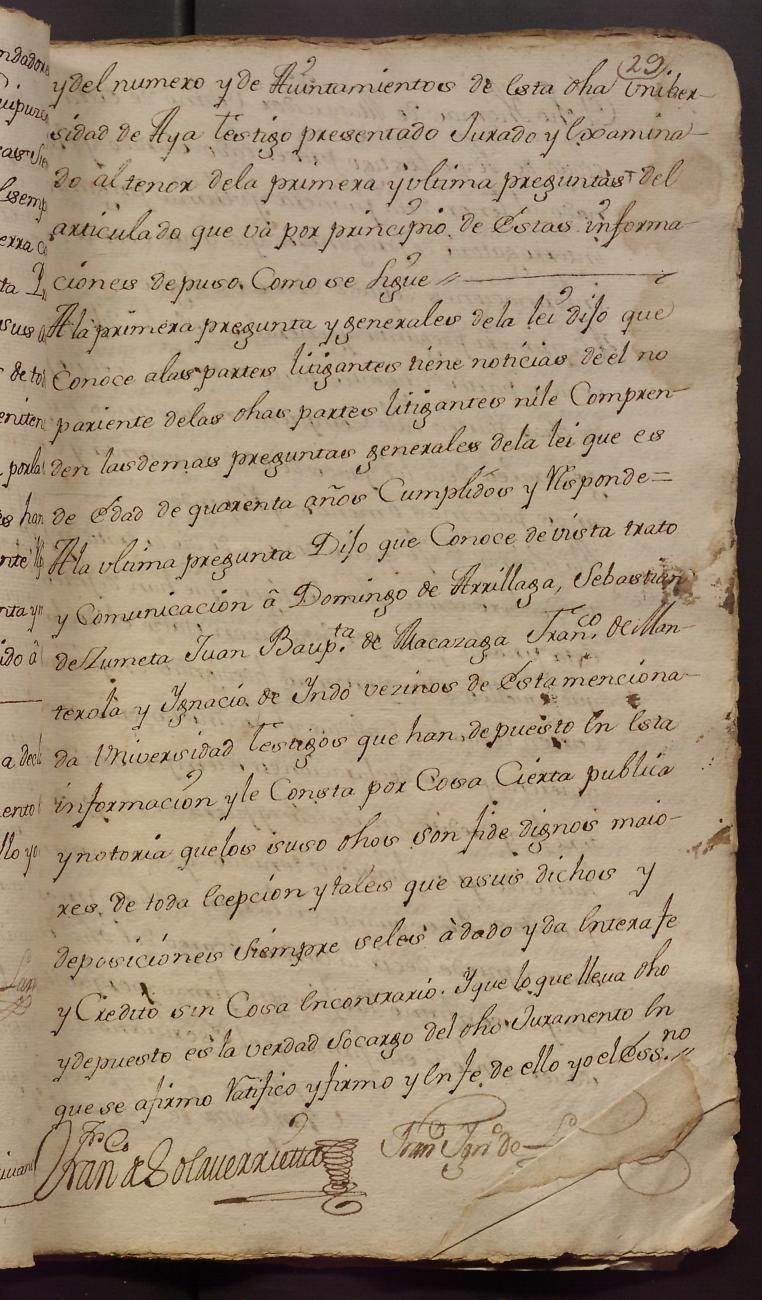 29
y del numero y de Aiuntamientos de esta dha Uniber-
sidad de Aya testigo presentado Jurado y examina-
do al tenor dela primera y ultima preguntas del
articulado que vá por principio de éstas informa
ciones depuso. Como se sigue //
A la primera pregunta y generales dela lei dijo que
Conoce alas partes litigantes tiene noticias de él no
pariente delas dhas partes litigantes nile Compren-
den las demas preguntas generales dela lei que es
de Edad de quarenta años Cumplidos y Responde=
A la ultima pregunta Dijo que Conoce de vista trato
y Comunicacion â Domingo de Arrillaga, Sebastian
de Zumeta Juan Baupta. de Macazaga Franco. de Man-
terola y Ygnacio de Yndo vezinos de ésta menciona-
da Universidad testigos que han depuesto en esta
informacion y le Consta por Cosa Cierta publica
y notoria quelos isuso dhos son fide dignos maio-
res de toda ecepcion y tales que asuis dichos y
deposiciones siempre seles à dado y da entera fe
y Credito sin Cosa encontrario. Y que lo que lleva dho
y depuesto es la verdad socargo del dho Juramento en
que se afirmo Ratifico y firmo y en fe. de ello yo el Essno. //
Fran de Solaverrietta
Fran Ign de